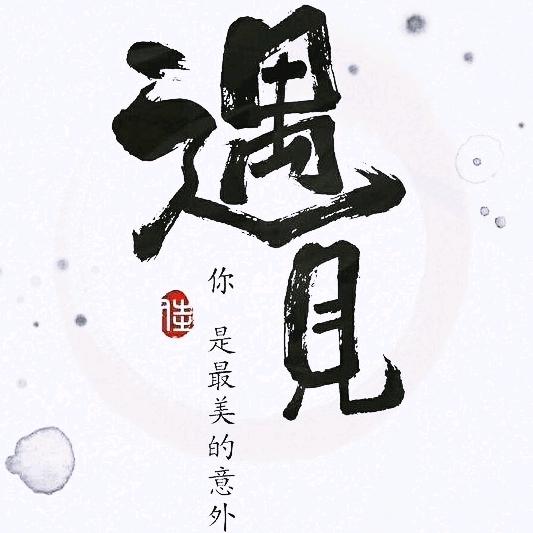 遇見
你 是最美的意外
佳